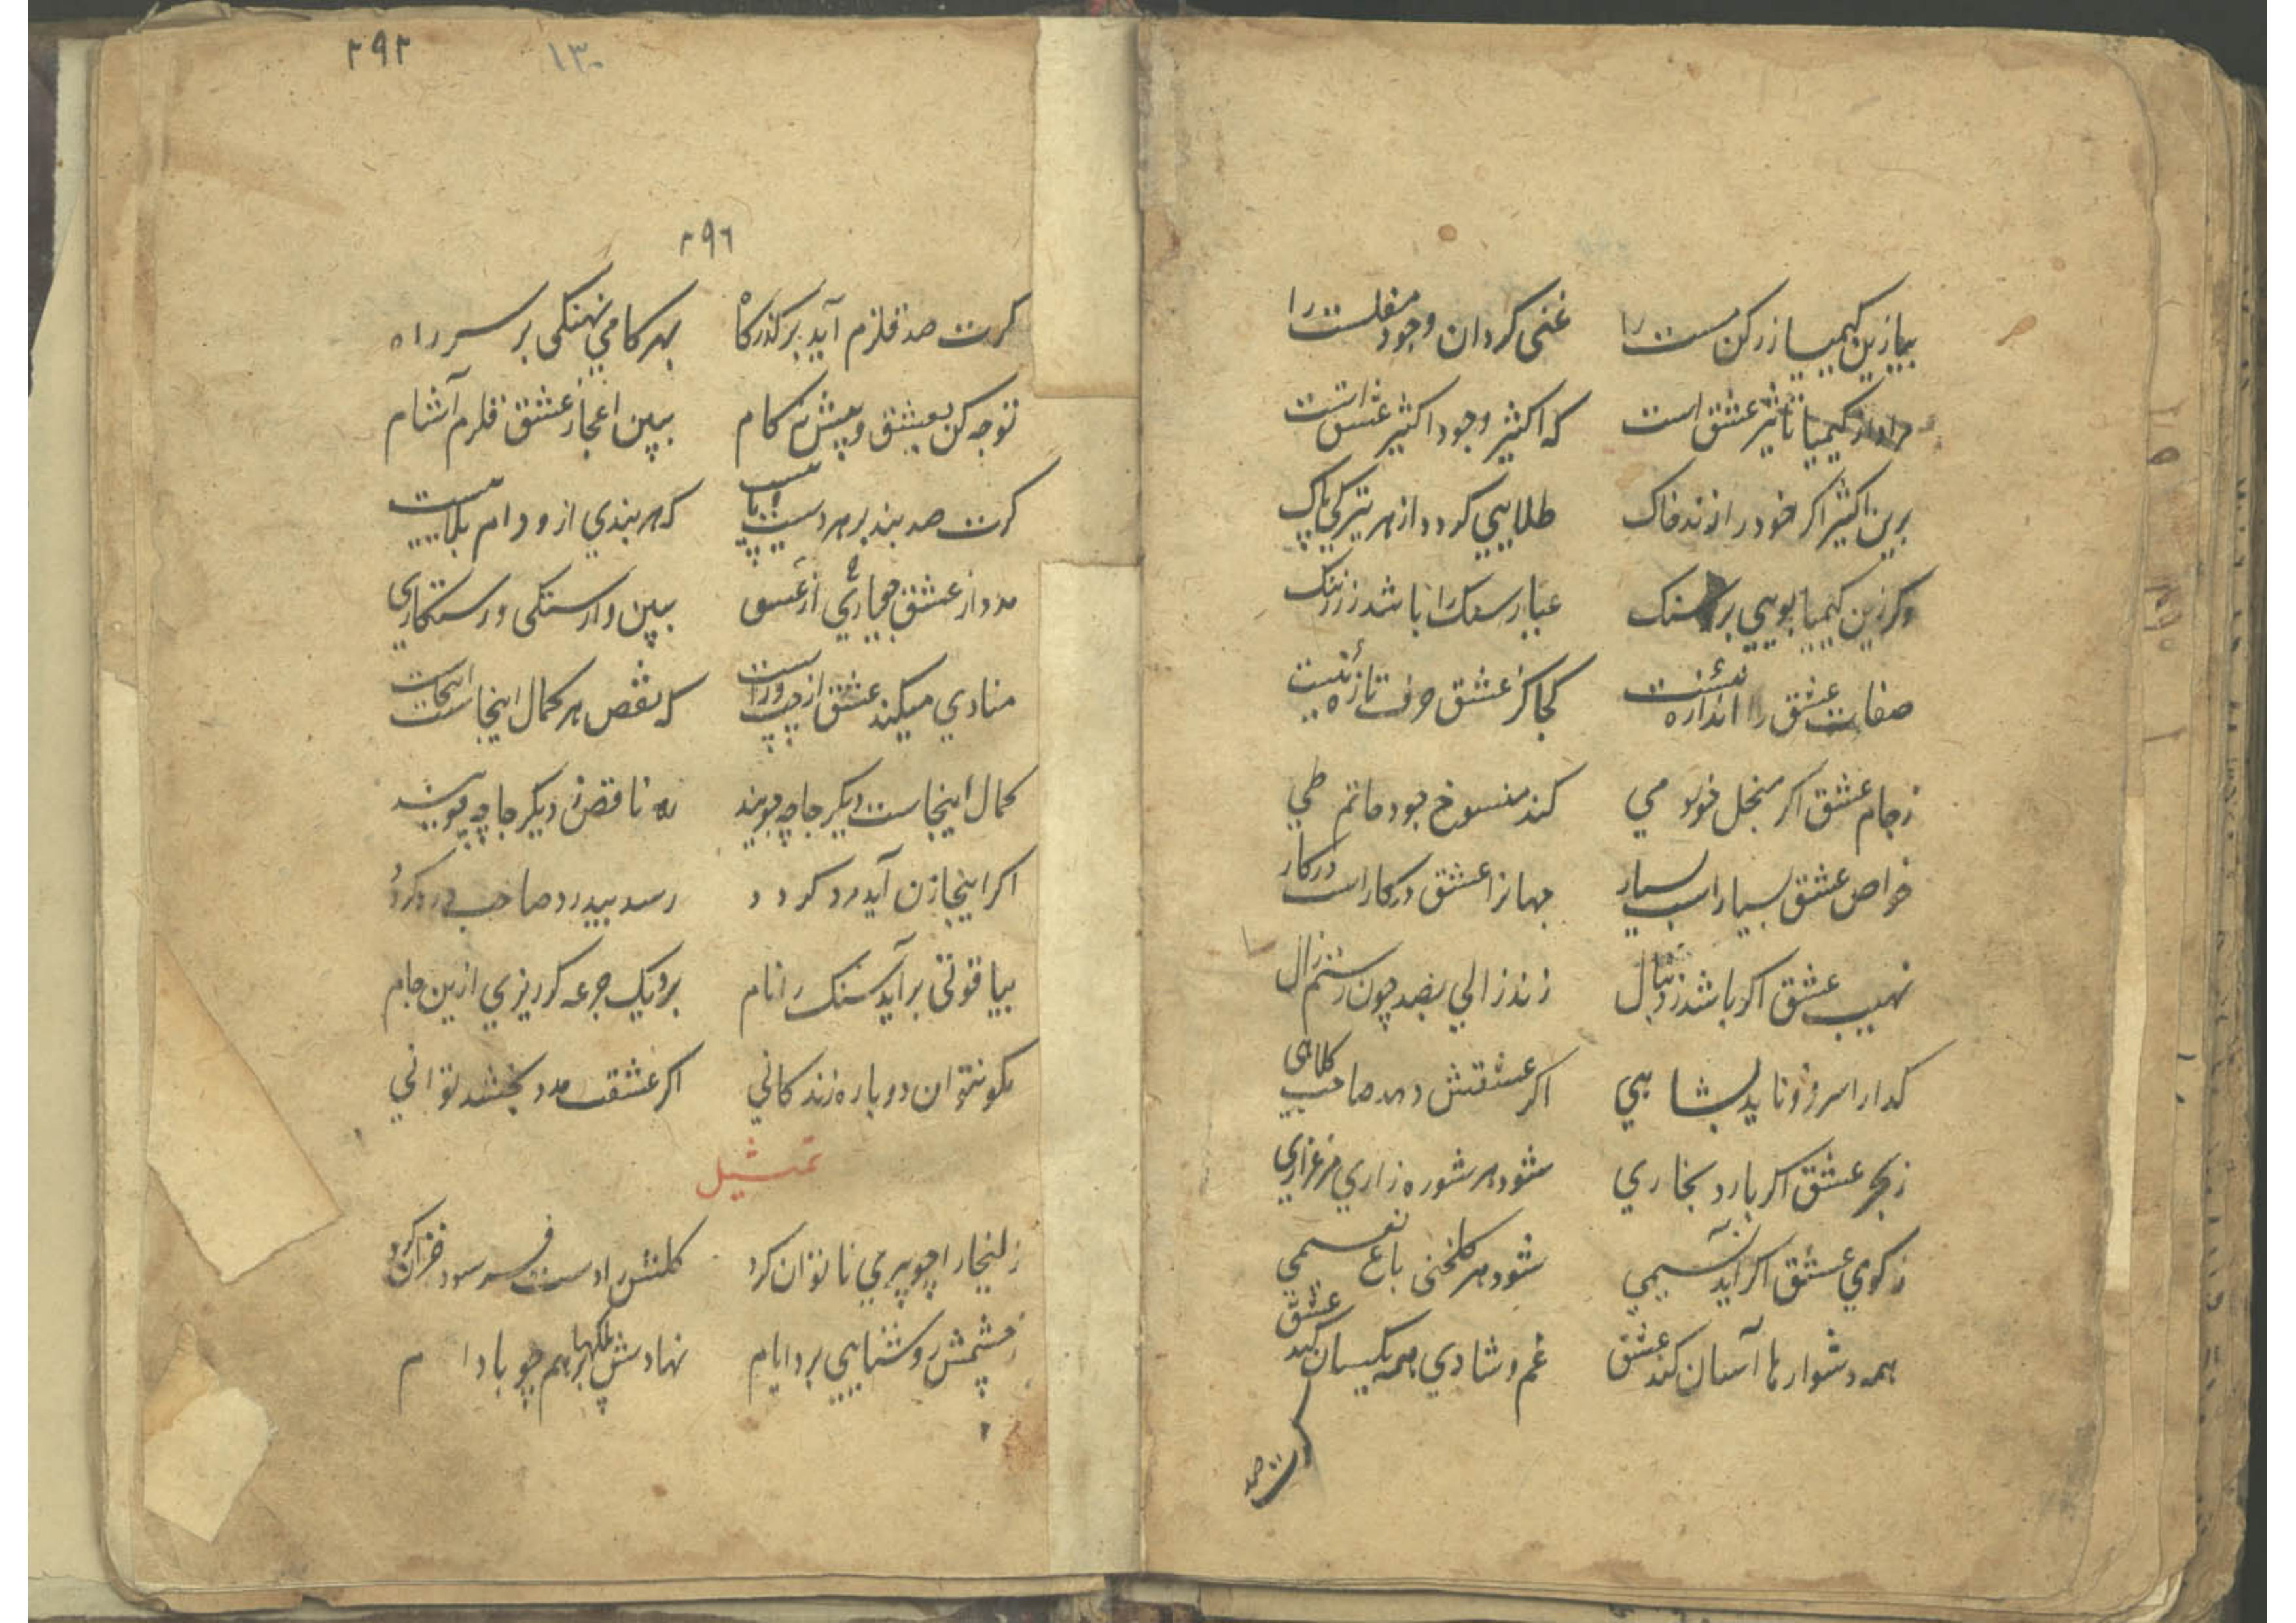 بیا زین کیمیا زر کن مست را    غنی کردان وجود مفلست را
مراد از کیمیا تاثیر عشق است    که اکثیر وجود اکثیر عشق است
برین اکثیر اکر خود را زند خاک    طلایی کردد از هر تیرکی پاک
وکر زین کیمیا بویی برد سنک    عیار سنک را باشد ز زر ننک
صفات عشق را اندازه نیست    کجا کز عشق حرف تازه نیست
ز جام عشق اکر منجل خورد می    کند منسوخ جود حاتم طی
خواص عشق بسیار است بسیار    جهانرا عشق در کار است در کار
نهیب عشق اکر باشد ز دنبال    زند زالی بصد چون رستم زال
کدا را سر فرو ناید بشاهی    اکر عشقش دهد صاحب کلاهی
ز بحر عشق اکر بارد بخاری    شود هر شوره زاری مرغزاری
ز کوی عشق اکر آید نسیمی    شود هر کلخنی باغ نعیمی
همه دشوارها آسان کند عشق    غم و شادی همه یکسان کند عشق
کرت صد
۱۳۰
۲۹۲
۲۹۶
کرت صد قلزم آید بر کذرکاه    بهر کامی نهنکی بر سر راه
توجه کن بعشق و پیش نه کام    ببین اعجاز عشق قلزم آشام
کرت صد بند بر هر دست و پا هست    که هر بندی ازو دام بلا هست
مدد از عشق جو یاری از عشق    ببین وارستکی و رستکاری
منادی میکند عشق از چپ و راست    که نقص هر کمال اینجاست اینجاست
کمال اینجاست دیکر جا چه جویند    ناقص دیکر جا چه پویند
اکر اینجا زن آید مرد کردد    رسد بیدرد صاحب درد کردد
بیاقوتی برآید سنک را نام    برو یک جرعه کر ریزی ازین جام
مکو نتوان دوباره زندکانی    اکر عشقت مدد بخشد توانی
تمثیل
زلیخا را چو پیری ناتوان کرد    کلش را دست فرسود خزان کرد
ز چشمش روشنایی برد ایام    نهادش پلکها برهم چو بادام